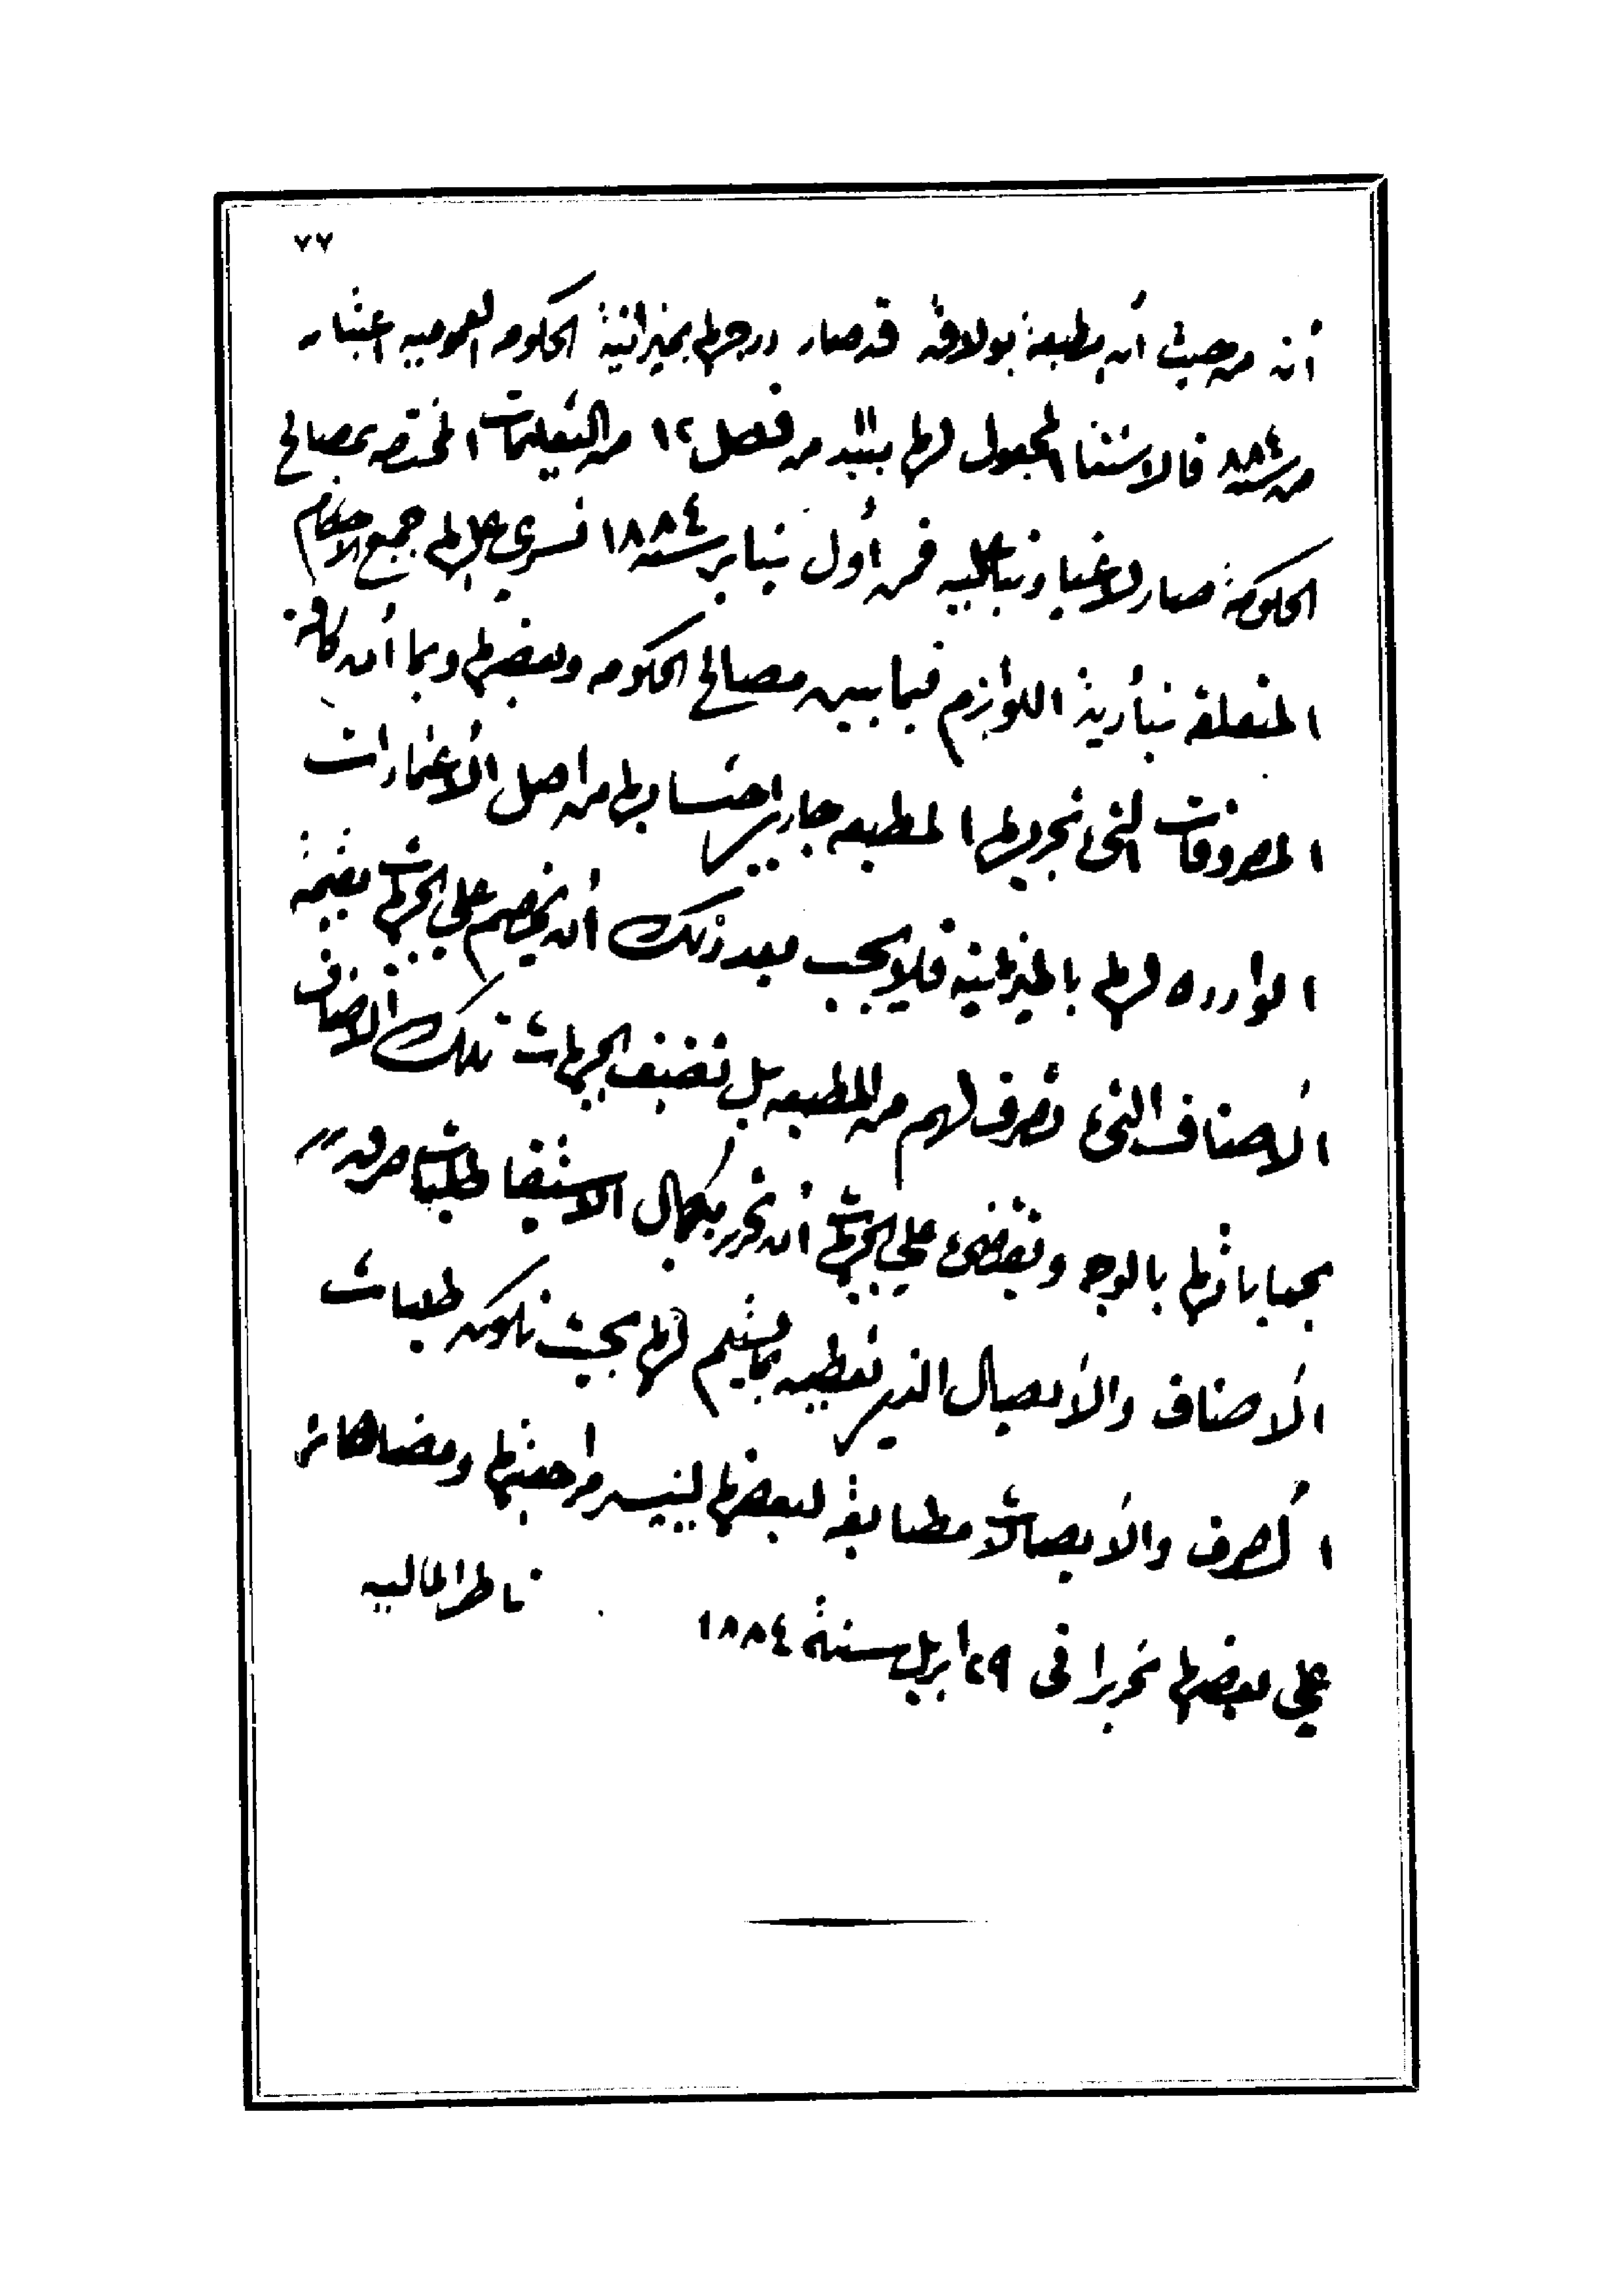 ٧٧
أن من حيث أن مطبعة بولاق قد صار درجها بميزانية الحكومه العموميه اعتبار
من سنة ٨٨٤ فالاستثنا المجعول لها من فصل ١٢ من التعليمات المختصه بمصالح
الحكومة صار لاغيا وبنا عليه فمن أول يناير سنة ١٨٨٤ تسرى عليها جميع الاحكام
المتعلقة بتأدية اللوازم فيما بين مصالح الحكومه وبعضها وبما أن كافة
المصروفات التى تجريها المطبعه جارى احتسابها من اصل الاعتمادات
الوارده لها بالميزانية فلا يجب بعد ذلك أن يخصم على الجهات بقيمة
الأصناف التى تصرف لهم من المطبعه بل تضيف الجهات تلك الأصناف
بحساباتها بالوجه ويقتضى على الجهات أن تحرر بكمال الاستيفا طلبات صرف
الأصناف والأيصال الذى تعطيه بما يتسلم لها بحيث تكون طلبات
الصرف والأيصالات مطابقة لبعضها ليتيسر مراجعتها ومضاهاة
على بعضها تحريرا فى ٢٩ ابريل سنة ١٨٨٤
ناظر الماليه